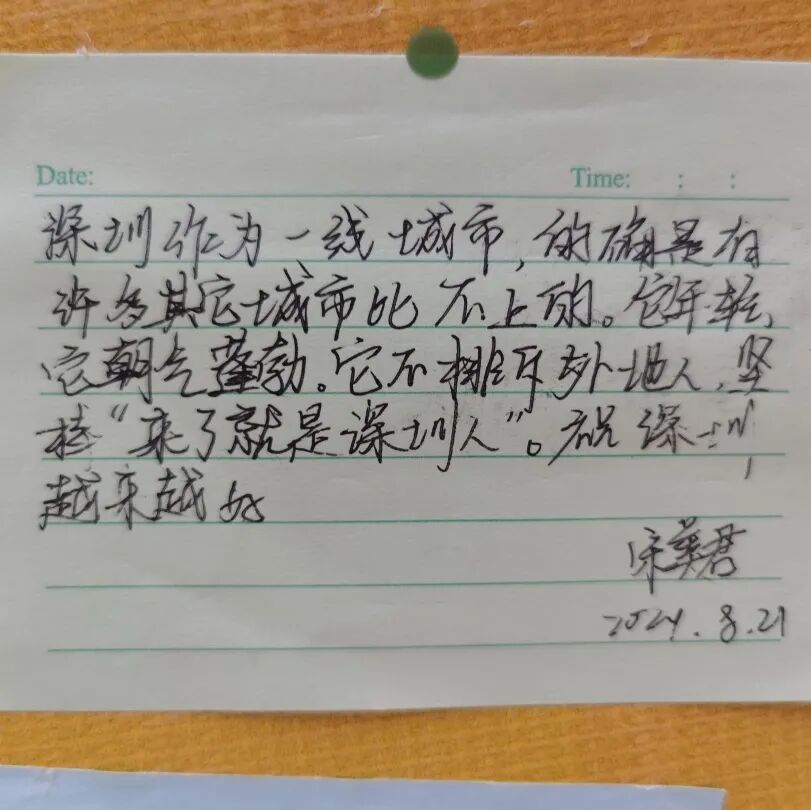 Date: Time: : :
深圳作为一线城市,的确是有
许多其它城市比不上的。它年轻,
它朝气蓬勃。它不排斥外地人,坚
持“来了就是深圳人”。祝深圳
越来越好
宋美君
2024.8.21